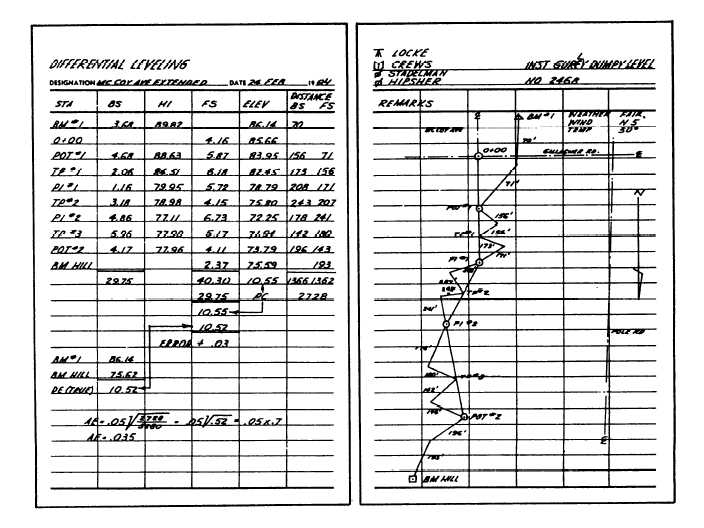 DIFFERENTIAL LEVELING
DESIGNATION MC COY AVE EXTENDED DATE 24 FEB 19 84
DISTANCE
STA BS HI FS ELEV BS FS
BM #1 3.68 89.82 86.14 70
0+00 4.16 85.66
POT #1 4.68 88.63 5.87 83.95 156 71
TP #1 2.06 84.51 6.18 82.45 173 156
PI #1 1.16 79.95 5.72 78.79 208 171
TP #2 3.18 78.98 4.15 75.80 243 207
PI #2 4.86 77.11 6.73 72.25 178 241
TP #3 5.96 77.90 5.17 71.94 142 180
POT #2 4.17 77.96 4.11 73.79 196 143
BM HILL 2.37 75.59 193
29.75 40.30 10.55 1366 1362
29.75 PC 2728
10.55
10.52
ERROR + .03
BM #1 86.14
BM HILL 75.62
DE (TRUE) 10.52
AE = .05 √2728/5280 = .05 √.52 = .05 x .7
AE = .035
LOCKE
CREWS INST GURLEY DUMPY LEVEL
STADELMAN
HIPSHER NO. 2468
REMARKS
BM #1 WEATHER FAIR.
MC COY AVE WIND N 5
TEMP 50°
70'
0+00 GALLAGHER RD.
71'
N
POT #1
156'
TP #1
173'
171'
PI #1
TP #2
241'
PI #2
POLE RD
180'
TP #3
142'
POT #2
196'
193'
BM HILL